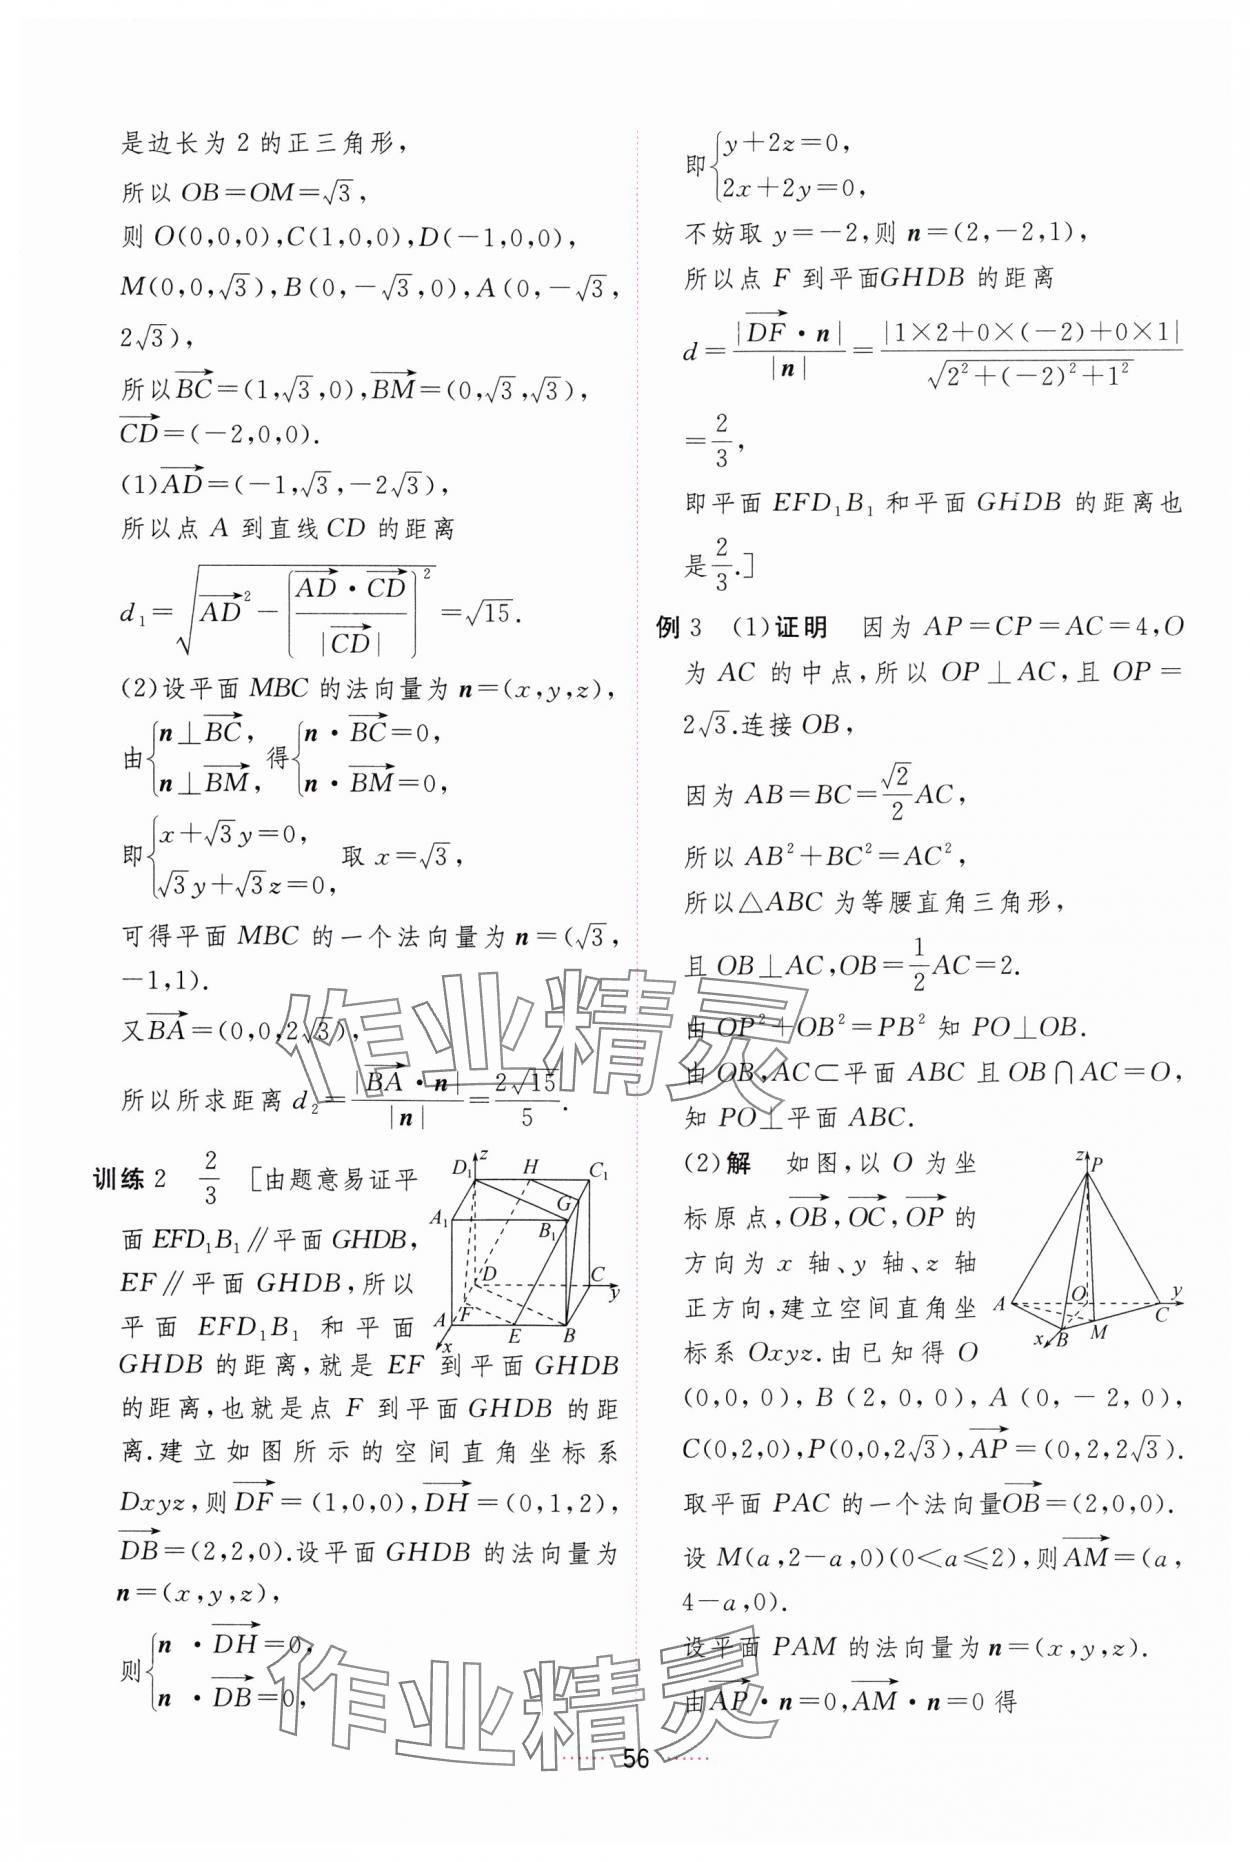 是边长为 2 的正三角形，
所以 OB=OM=√3，
则 O(0,0,0),C(1,0,0),D(-1,0,0),
M(0,0,√3),B(0,-√3,0),A(0,-√3,
2√3),
所以$\overrightarrow{BC}$=(1,√3,0),$\overrightarrow{BM}$=(0,√3,√3),
$\overrightarrow{CD}$=(-2,0,0).
(1)$\overrightarrow{AD}$=(-1,√3,-2√3),
所以点 A 到直线 CD 的距离
$d_1=\sqrt{\overrightarrow{AD}^2-\left(\frac{\overrightarrow{AD}·\overrightarrow{CD}}{|\overrightarrow{CD}|}\right)^2}=\sqrt{15}$.
(2)设平面 MBC 的法向量为 n=(x,y,z),
由$\begin{cases}n⊥\overrightarrow{BC},\\n⊥\overrightarrow{BM},\end{cases}$得$\begin{cases}n·\overrightarrow{BC}=0,\\n·\overrightarrow{BM}=0,\end{cases}$
即$\begin{cases}x+\sqrt{3}y=0,\\\sqrt{3}y+\sqrt{3}z=0,\end{cases}$取 x=√3,
可得平面 MBC 的一个法向量为 n=(√3,
-1,1).
又$\overrightarrow{BA}$=(0,0,2√3),
所以所求距离 $d_2=\frac{|\overrightarrow{BA}·n|}{|n|}=\frac{2\sqrt{15}}{5}$.
训练 2 $\frac{2}{3}$ [由题意易证平
面 EFD₁B₁∥平面 GHDB,
EF∥平面 GHDB,所以
平面 EFD₁B₁ 和平面
GHDB 的距离,就是 EF 到平面 GHDB
的距离,也就是点 F 到平面 GHDB 的距
离.建立如图所示的空间直角坐标系
Dxyz,则$\overrightarrow{DF}$=(1,0,0),$\overrightarrow{DH}$=(0,1,2),
$\overrightarrow{DB}$=(2,2,0).设平面 GHDB 的法向量为
n=(x,y,z),
则$\begin{cases}n·\overrightarrow{DH}=0,\\n·\overrightarrow{DB}=0,\end{cases}$
D₁ z H C₁
G
A₁ B₁
D C y
F
A x E B
即$\begin{cases}y+2z=0,\\2x+2y=0,\end{cases}$
不妨取 y=-2,则 n=(2,-2,1),
所以点 F 到平面GHDB 的距离
$d=\frac{|\overrightarrow{DF}·n|}{|n|}=\frac{|1×2+0×(-2)+0×1|}{\sqrt{2^2+(-2)^2+1^2}}$
$=\frac{2}{3}$,
即平面 EFD₁B₁ 和平面 GHDB 的距离也
是$\frac{2}{3}$.]
例 3 (1)证明 因为 AP=CP=AC=4,O
为 AC 的中点,所以 OP⊥AC,且 OP=
2√3.连接 OB,
因为 AB=BC=$\frac{\sqrt{2}}{2}$AC,
所以 AB²+BC²=AC²,
所以△ABC 为等腰直角三角形,
且 OB⊥AC,OB=$\frac{1}{2}$AC=2.
由 OP²+OB²=PB² 知 PO⊥OB.
由 OB,AC⊂平面 ABC 且 OB∩AC=O,
知 PO⊥平面 ABC.
(2)解 如图,以 O 为坐
标原点,$\overrightarrow{OB}$,$\overrightarrow{OC}$,$\overrightarrow{OP}$ 的
方向为 x 轴、y 轴、z 轴
正方向,建立空间直角坐
标系 Oxyz.由已知得 O
(0,0,0),B(2,0,0),A(0,-2,0),
C(0,2,0),P(0,0,2√3),$\overrightarrow{AP}$=(0,2,2√3).
取平面 PAC 的一个法向量$\overrightarrow{OB}$=(2,0,0).
设 M(a,2-a,0)(0<a≤2),则$\overrightarrow{AM}$=(a,
4-a,0).
设平面 PAM 的法向量为 n=(x,y,z).
由$\overrightarrow{AP}$·n=0,$\overrightarrow{AM}$·n=0 得
z P
A O C y
x B M
作业精灵
作业精灵
56